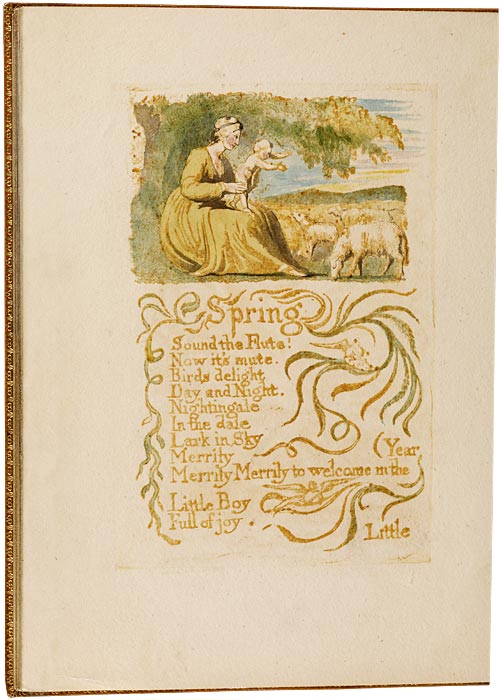 Spring
Sound the Flute!
Now it's mute.
Birds delight
Day and Night.
Nightingale
In the dale
Lark in Sky
Merrily
(Year,
Merrily Merrily to welcome in the
Little Boy
Full of joy.
Little